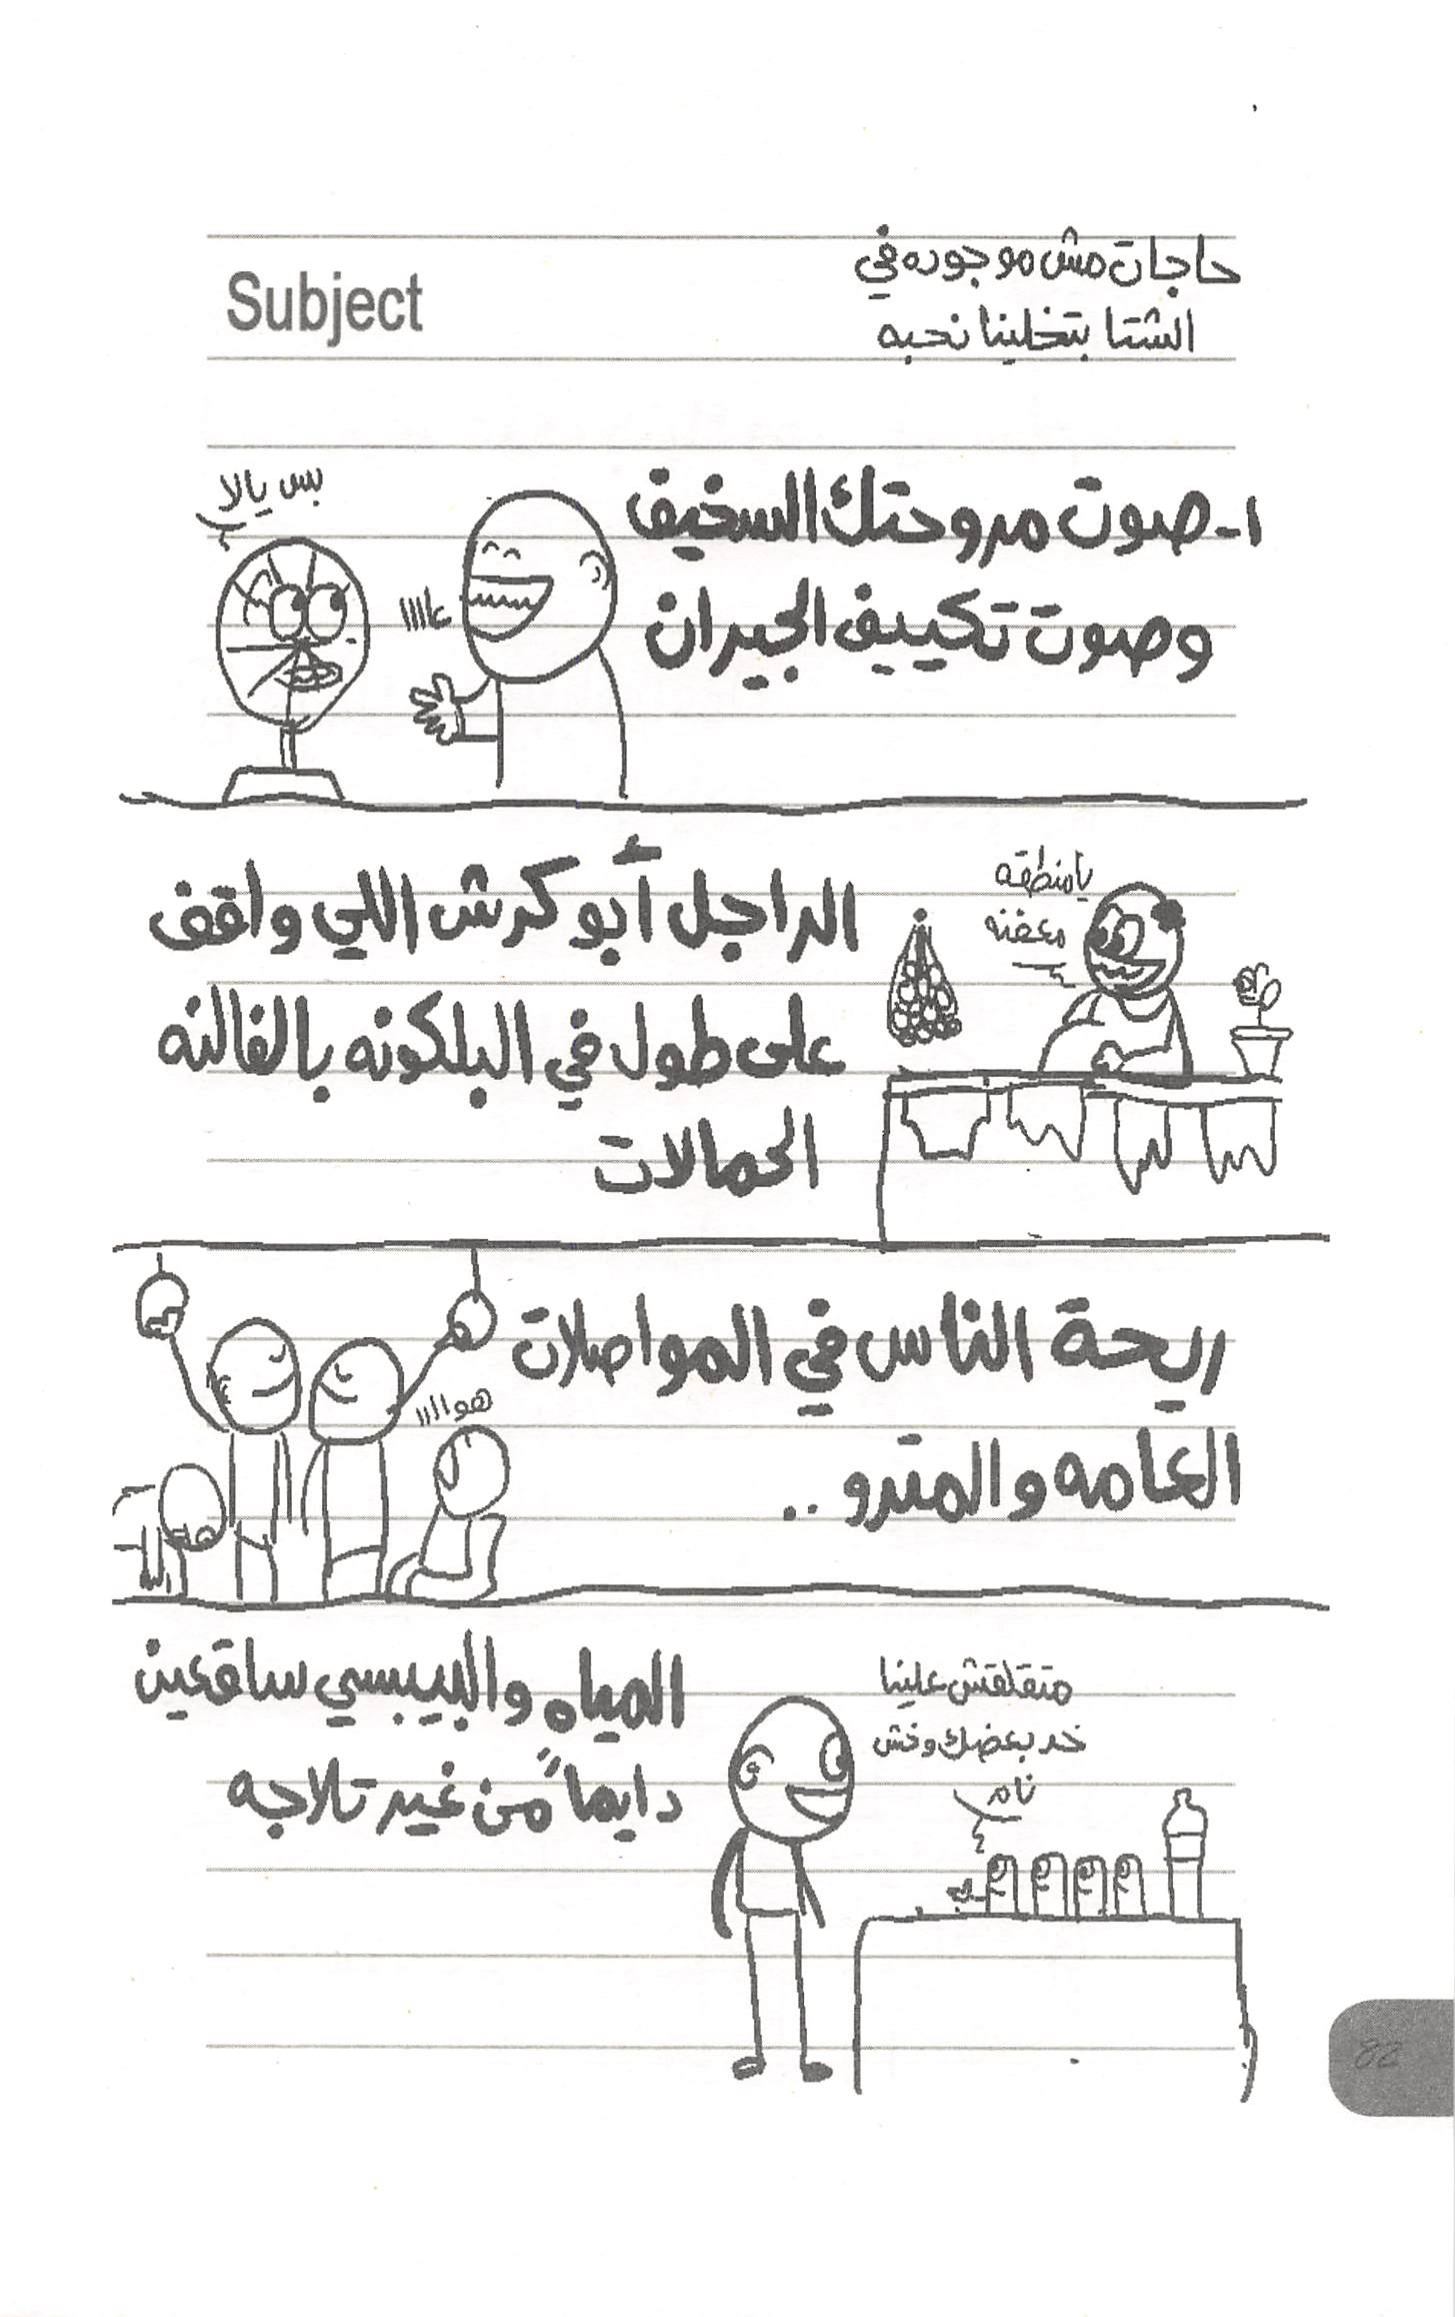 حاجات مش موجوده في
الشتا بتخلينا نحبه
Subject
١- صوت مروحتك السخيف
وصوت تكييف الجيران
بس يالا
عاااا
يا منطقه
معفنه
الراجل أبو كرش اللي واقف
على طول في البلكونه بالفالنه
الحمالات
ريحة الناس في المواصلات
العامه والمترو..
هواااا
المياه والبيبسي ساقعين
دايماً من غير تلاجه
متقلقش علينا
خد بعضك وخش
نام
82